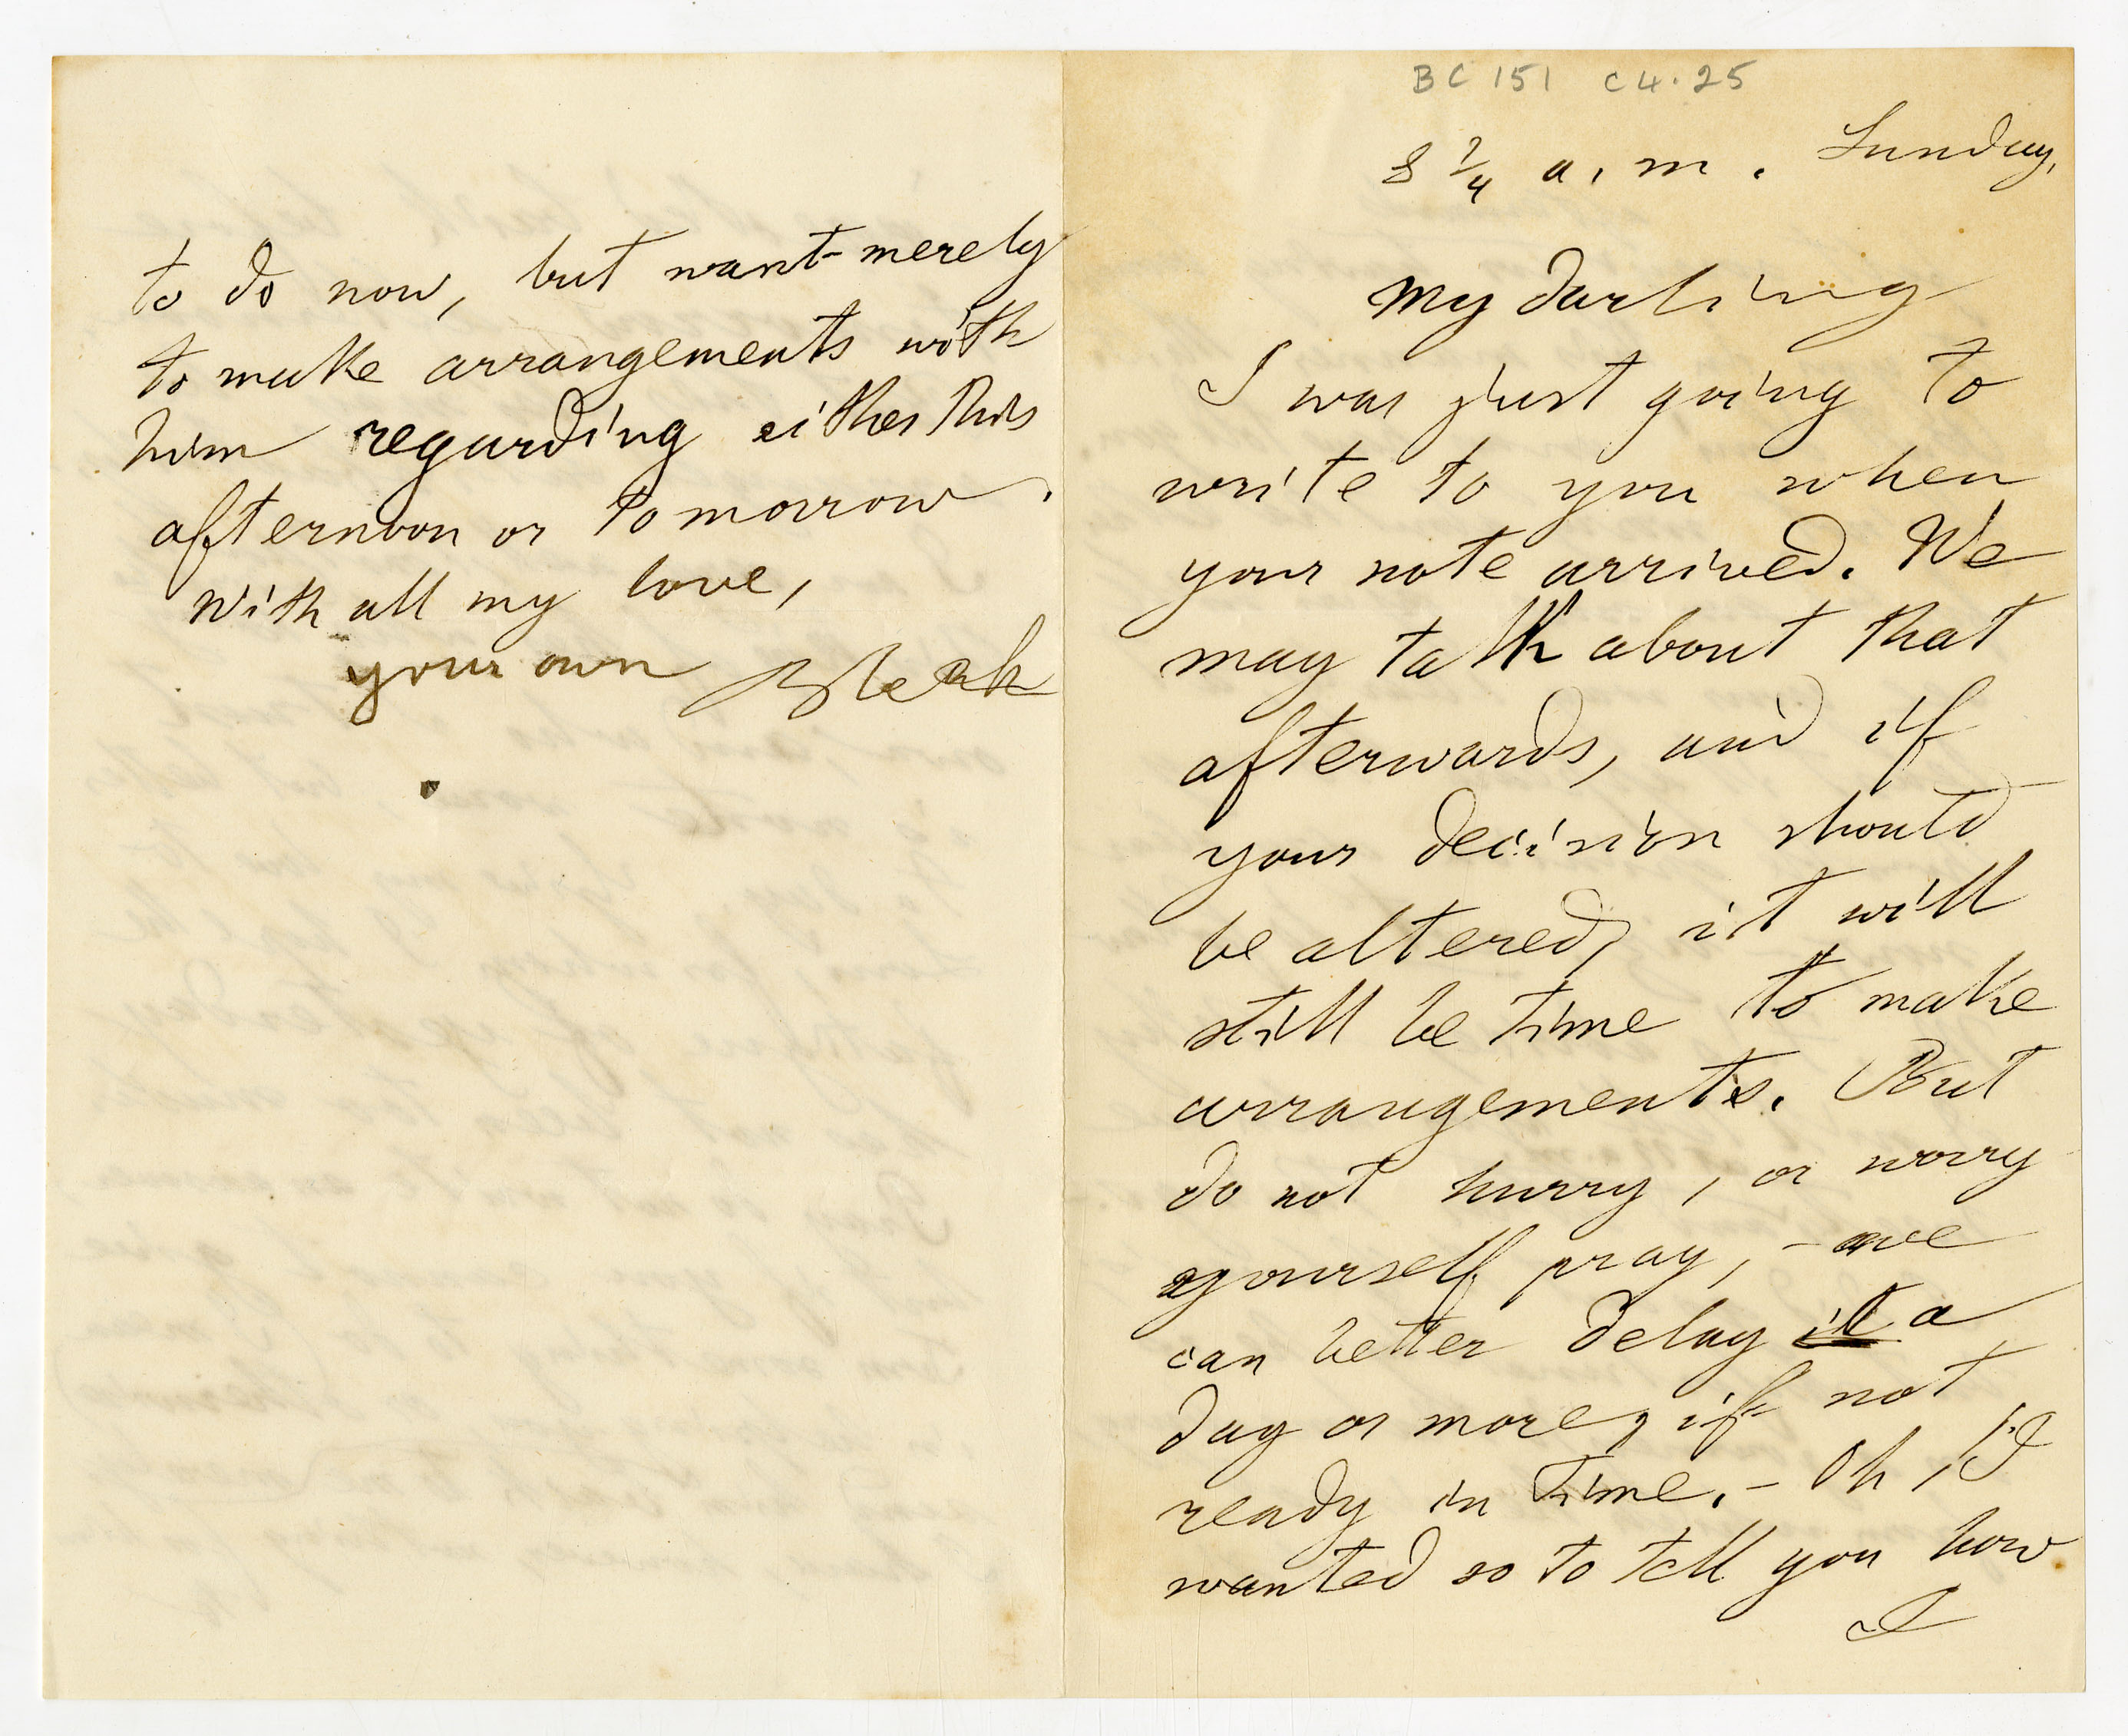 BC 151 C4.25
8 1/4 a.m. Sunday,
My darling
I was just going to
write to you when
your note arrived. We
may talk about that
afterwards, and if
your decision should
be altered, it will
still be time to make
arrangements. But
do not hurry, or worry
yourself pray, - we
can better delay it a
day or more, if not
ready in time. - Oh, I'd
wanted so to tell you how
I
to do now, but want merely
to make arrangements with
him regarding either this
afternoon or tomorrow.
With all my love,
your own Bleek